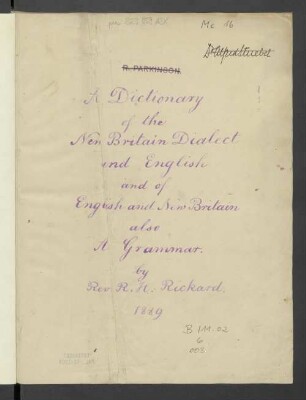 Me 16
R. PARKINSON
A Dictionary
of the
New Britain Dialect
and English
and of
English and New Britain
also
A Grammar.
by
Rev. R. H. Rickard.
1889
B 111.02
6
003